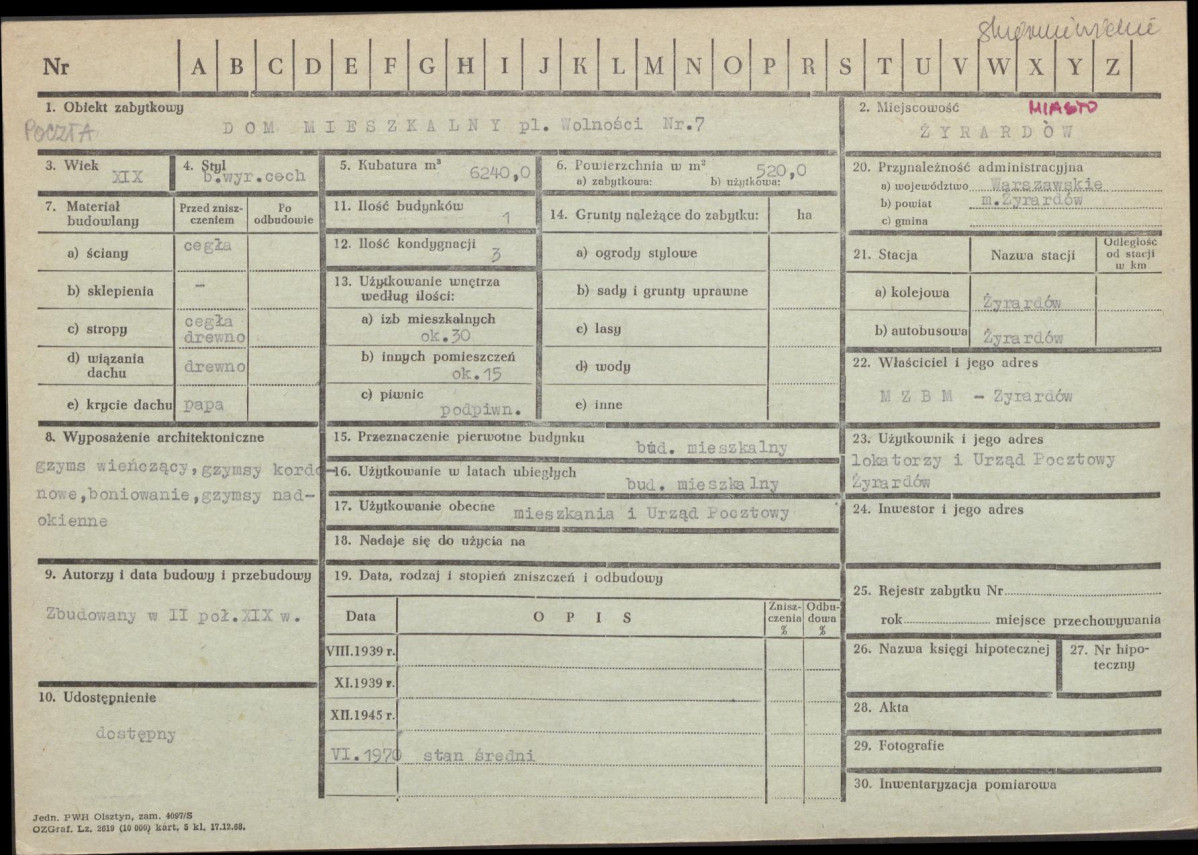 Skierniewickie
Nr A B C D E F G H I J K L M N O P R S T U V W X Y Z
1. Obiekt zabytkowy
POCZTA
DOM MIESZKALNY pl. Wolności Nr.7
2. Miejscowość MIASTO
ŻYRARDÒW
3. Wiek
XIX
4. Styl
b.wyr.cech
5. Kubatura m³
6240,0
6. Powierzchnia w m²
520,0
a) zabytkowa: b) użytkowa:
7. Materiał budowlany
Przed znisz-
czeniem
Po
odbudowie
a) ściany cegła
b) sklepienia –
c) stropy cegła
drewno
d) wiązania
dachu drewno
e) krycie dachu papa
8. Wyposażenie architektoniczne
gzyms wieńczący, gzymsy kordo-
nowe, boniowanie, gzymsy nad-
okienne
9. Autorzy i data budowy i przebudowy
Zbudowany w II poł.XIX w.
10. Udostępnienie
dostępny
11. Ilość budynków
1
12. Ilość kondygnacji
3
13. Użytkowanie wnętrza
według ilości:
a) izb mieszkalnych
ok.30
b) innych pomieszczeń
ok.15
c) piwnic
podpiwn.
14. Grunty należące do zabytku: ha
a) ogrody stylowe
b) sady i grunty uprawne
c) lasy
d) wody
e) inne
15. Przeznaczenie pierwotne budynku
bud. mieszkalny
16. Użytkowanie w latach ubiegłych
bud. mieszkalny
17. Użytkowanie obecne mieszkania i Urząd Pocztowy
18. Nadaje się do użycia na
19. Data, rodzaj i stopień zniszczeń i odbudowy
Data
OPIS
Znisz-
czenia
%
Odbu-
dowa
%
VIII.1939 r.
XI.1939 r.
XII.1945 r.
VI.1970 stan średni
20. Przynależność administracyjna
a) województwo Warszawskie
b) powiat m.Żyrardów
c) gmina
21. Stacja
Nazwa stacji
Odległość
od stacji
w km
a) kolejowa Żyrardów
b) autobusowa Żyrardów
22. Właściciel i jego adres
MZBM - Żyrardów
23. Użytkownik i jego adres
lokatorzy i Urząd Pocztowy
Żyrardów
24. Inwestor i jego adres
25. Rejestr zabytku Nr
rok miejsce przechowywania
26. Nazwa księgi hipotecznej
27. Nr hipo-
teczny
28. Akta
29. Fotografie
30. Inwentaryzacja pomiarowa
Jedn. PWH Olsztyn, zam. 4097/S
OZGraf. Lz. 2619 (10 000) kart, 5 kl. 17.12.68.